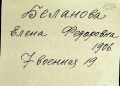 Беланова
Елена Федоровна
1906
7 военная 19